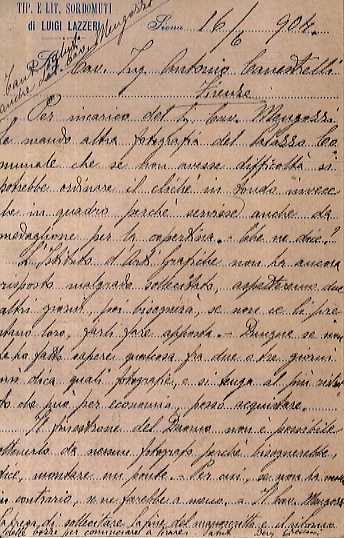 TIP. E LIT. SORDOMUTI
di LUIGI LAZZERI
Siena 16/6 904.
Tanti saluti
anche dal Cav. Mengozzi
Cav. Ing Antonio Canestrelli
Firenze
Per incarico del Sig Cav. Mengozzi
le mando altra fotografia del Palazzo Co=
munale che se non avesse difficoltà si
potrebbe ordinare il clichè in tondo invece
che in quadro perchè servisse anche da
medaglione per la copertina. - Che ne dice?
L'Istituto d'Arti Grafiche non ha ancora
risposto malgrado sollecitato, aspetteremo due
altri giorni, poi bisognerà, se non ce lo pre=
stano loro, farli fare apposta. - Dunque se non
le ho fatto sapere qualcosa fra due o tre giorni
mi dica quali fotografie, e si tenga al più
che può per economia, posso acquistare.
Il finestrone del Duomo non è possibile
ottenerlo da nessun fotografo perchè bisognerebbe,
dice, montare un ponte. - Per cui, se non ha
in contrario, se ne farebbe a meno. - Il Cav. Mengozzi
la prega di sollecitare la fine del manoscritto e il ritorno
delle bozze per cominciare a tirare.